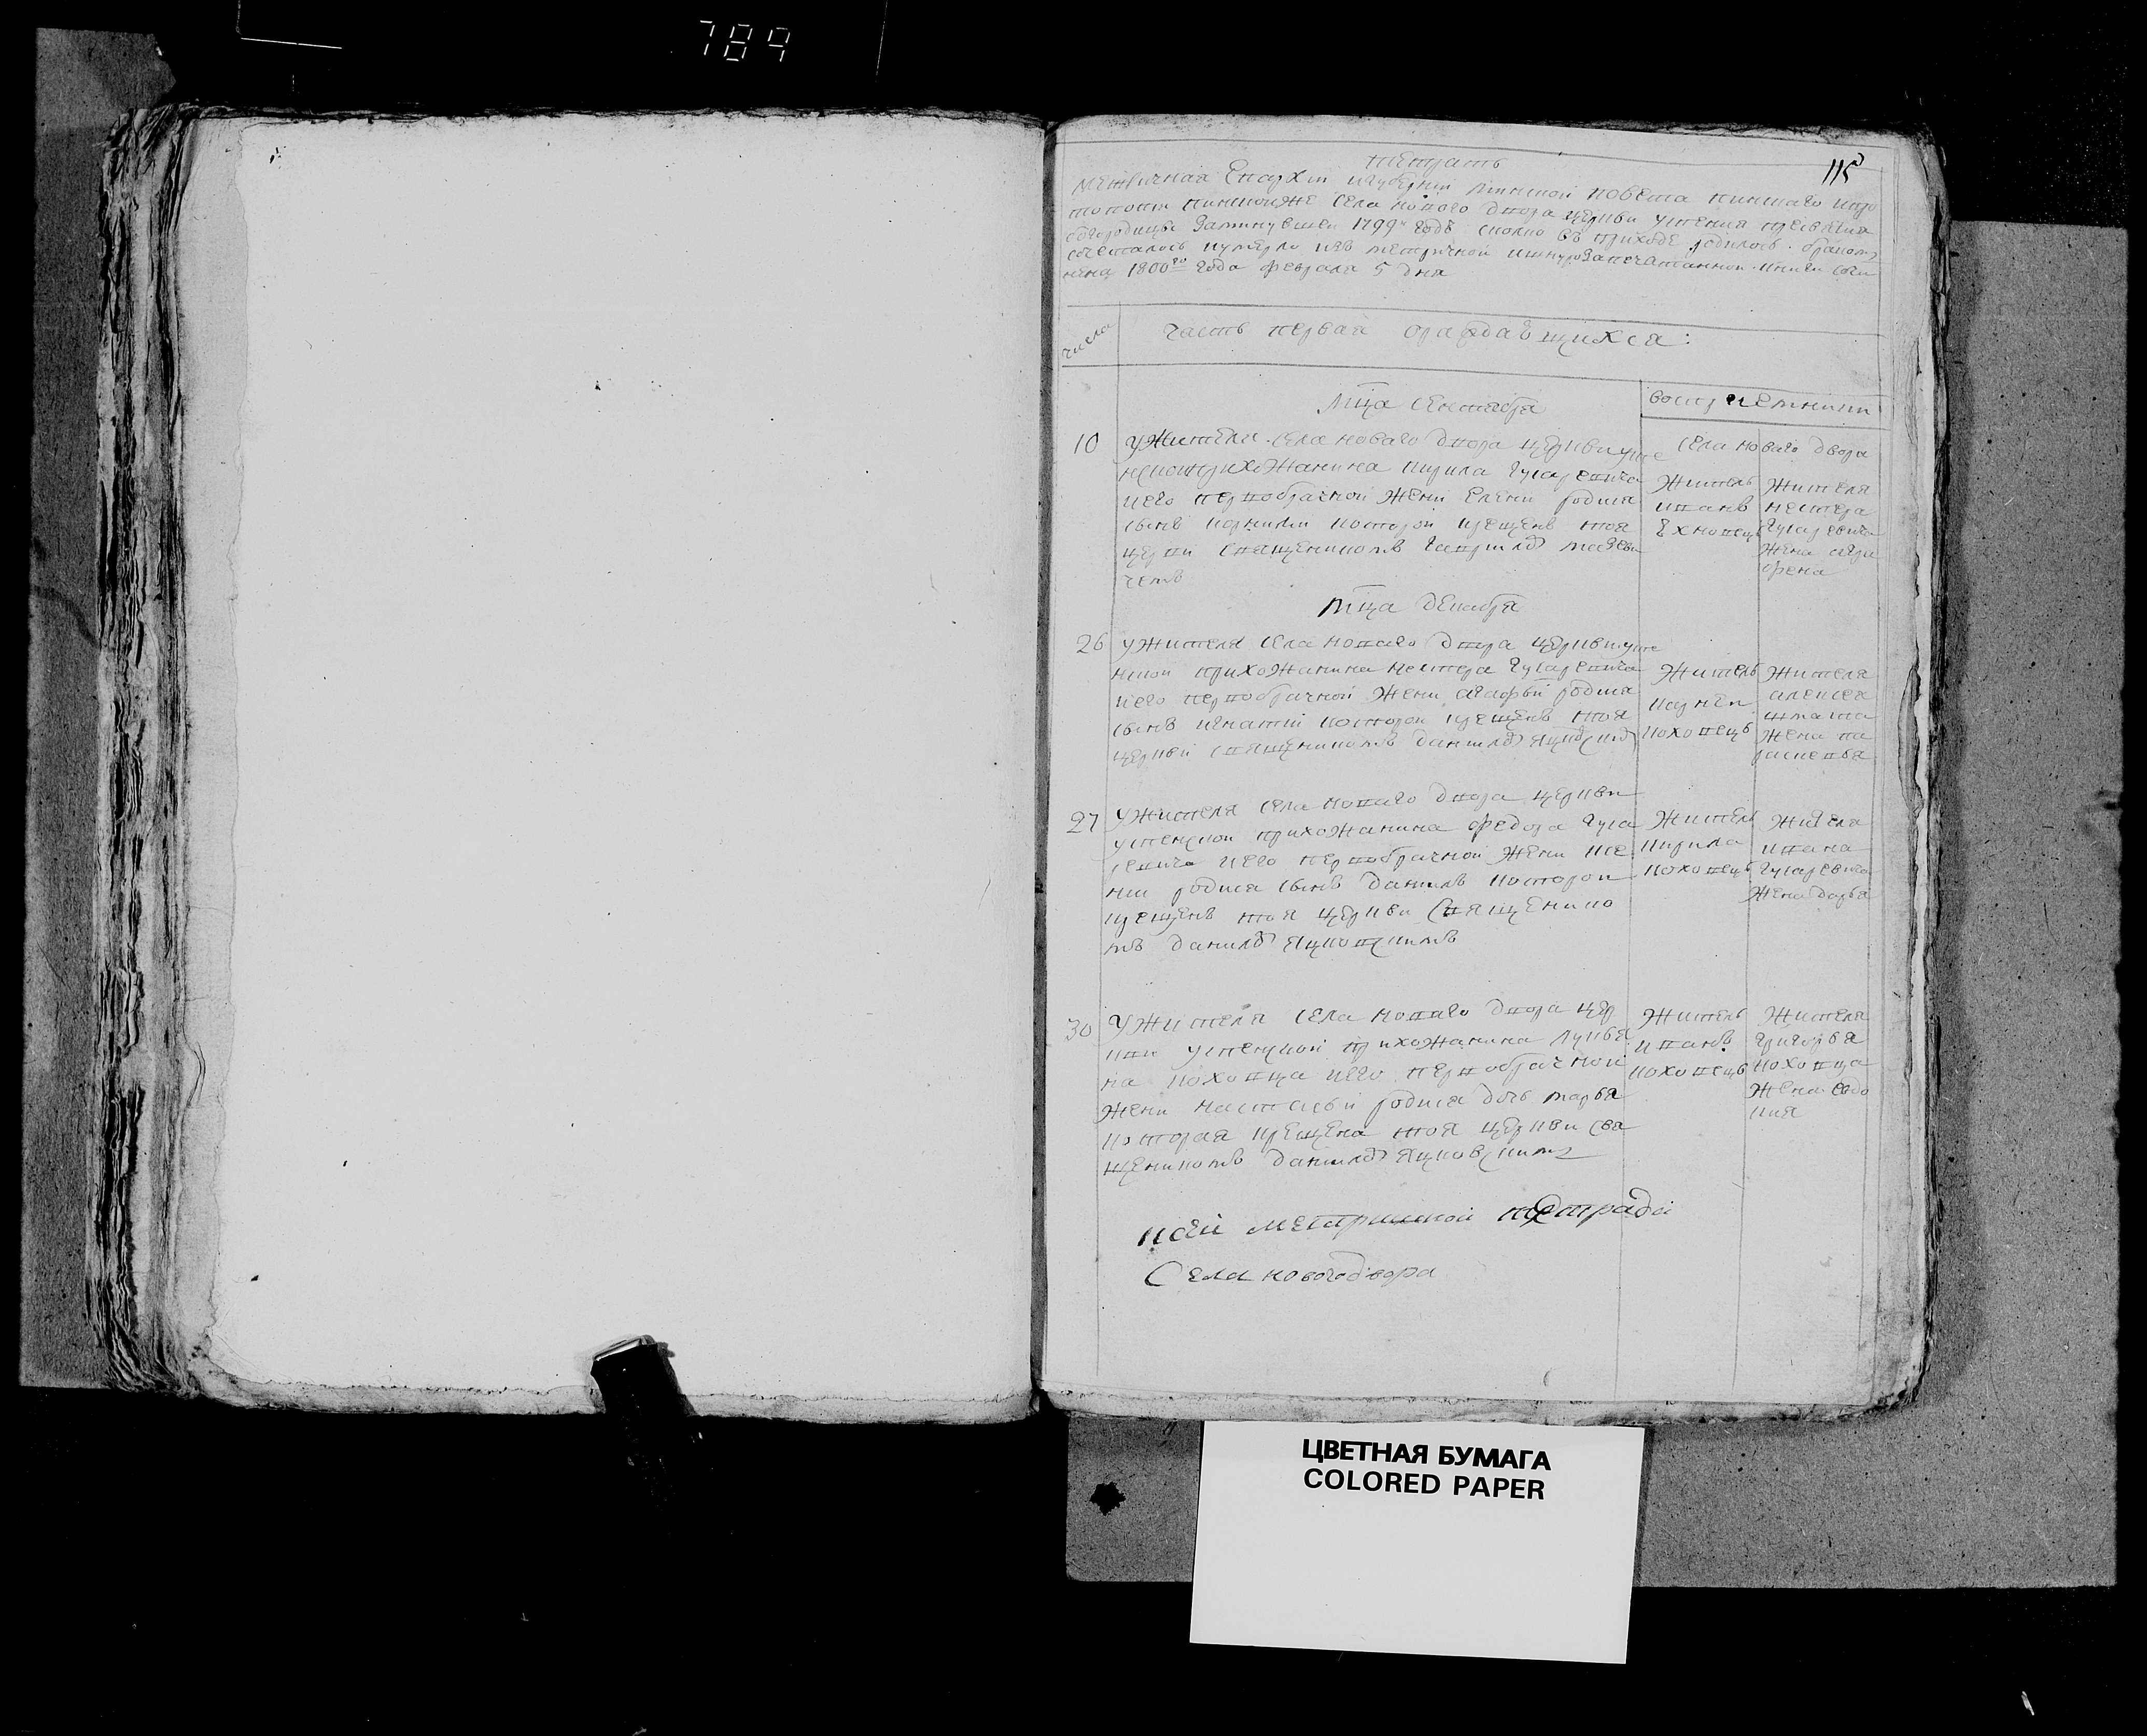 789
115
тетрать
метричная Епархии игубернии минской повета пинскаго и про
топопи пинскоиже села новаго двора церкви успения пресвятия
богородицы Заминувшеи 1799 годъ сколко въ приходе родилось браком
сочеталось иумерло изъ метричной ишнурозапечатанной книги сочи
нена 1800го года февраля 5 дня
числа
часть первая ораждающихся:
мца сентября
восприемники
10
ужителя села новаго двора церкви успе
нскои прихожанина кирила гусаревича
иего первобрачной жени елени родися
сынъ корнилии которои крещенъ тоя
церкви священикомъ гаврилом
чемъ
села новаго двора
житель
иванъ
жителя
нестера
гусаревича
жена агри
фена
мца декабря
26
ужителя села новаго двора церкви успе
нскои прихожанина нестера гусаревича
иего первобрачной жени агафьи родися
сынъ игнатии которои крещенъ тоя
церкви священикомъ данилом
житель
коховецъ
жителя
алексея
жена па
раскевья
27
ужителя села новаго двора церкви
успенскои прихожанина федора гуса
ревича иего первобрачной жени ксе
нии родися сынъ данилъ которои
крещенъ тоя церкви священико
мъ данилом яцковскимъ
житель
кирила
коховецъ
жителя
ивана
гусаревича
жена дарья
30
ужителя села новаго двора цер
кви успенскои прихожанина лукья
на коховца иего первобрачной
жени настасьи родися дочь марья
которая крещена тоя церкви свя
щеникомъ данилом яцковскимъ
житель
иванъ
коховецъ
жителя
григорья
коховца
жена евдо
кия
ксей метричной тетради
Села новогодвора
ЦВЕТНАЯ БУМАГА
COLORED PAPER